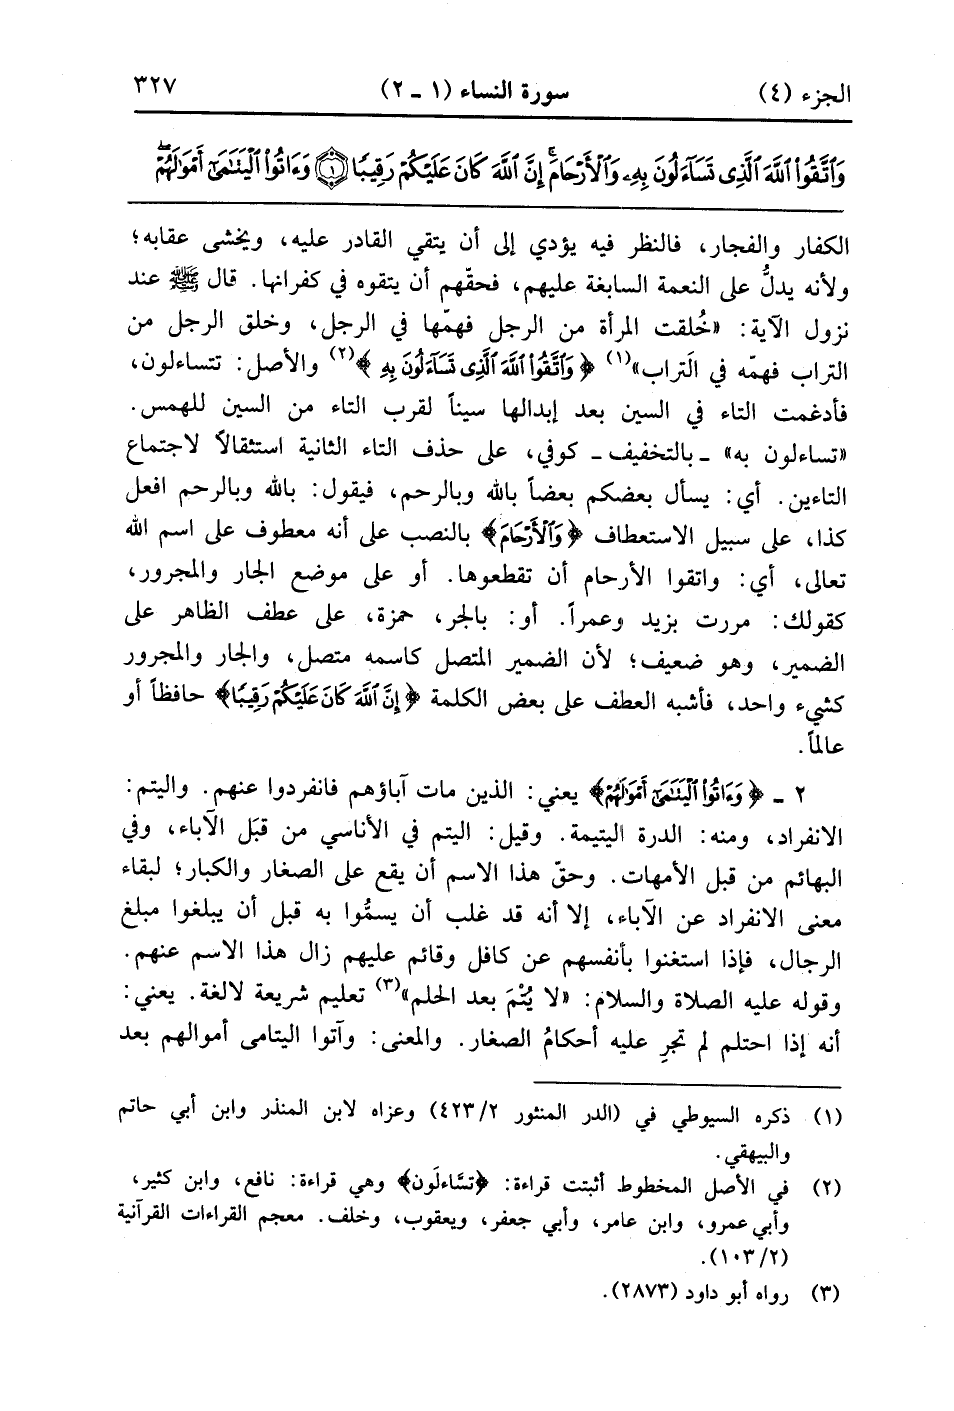 الجزء (٤)
سورة النساء (١ ـ ٢)
٣٢٧
وَٱتَّقُوا۟ ٱللَّهَ ٱلَّذِى تَسَآءَلُونَ بِهِۦ وَٱلْأَرْحَامَ ۚ إِنَّ ٱللَّهَ كَانَ عَلَيْكُمْ رَقِيبًا ١ وَءَاتُوا۟ ٱلْيَتَـٰمَىٰٓ أَمْوَٰلَهُمْ ۖ
الكفار والفجار، فالنظر فيه يؤدي إلى أن يتقي القادر عليه، ويخشى عقابه؛
ولأنه يدلُّ على النعمة السابغة عليهم، فحقّهم أن يتقوه في كفرانها. قال ﷺ عند
نزول الآية: «خُلقت المرأة من الرجل فهمّها في الرجل، وخلق الرجل من
التراب فهمّه في التراب»(١) ﴿وَٱتَّقُوا۟ ٱللَّهَ ٱلَّذِى تَسَآءَلُونَ بِهِ﴾(٢) والأصل: تتساءلون،
فأدغمت التاء في السين بعد إبدالها سيناً لقرب التاء من السين للهمس.
«تساءلون به» ـ بالتخفيف ـ كوفي، على حذف التاء الثانية استثقالاً لاجتماع
التاءين. أي: يسأل بعضكم بعضاً بالله وبالرحم، فيقول: بالله وبالرحم افعل
كذا، على سبيل الاستعطاف ﴿وَٱلْأَرْحَامَ﴾ بالنصب على أنه معطوف على اسم الله
تعالى، أي: واتقوا الأرحام أن تقطعوها. أو على موضع الجار والمجرور،
كقولك: مررت بزيد وعمراً. أو: بالجر، حمزة، على عطف الظاهر على
الضمير، وهو ضعيف؛ لأن الضمير المتصل كاسمه متصل، والجار والمجرور
كشيء واحد، فأشبه العطف على بعض الكلمة ﴿إِنَّ ٱللَّهَ كَانَ عَلَيْكُمْ رَقِيبًا﴾ حافظاً أو
عالماً.
٢ ـ ﴿وَءَاتُوا۟ ٱلْيَتَـٰمَىٰٓ أَمْوَٰلَهُمْ﴾ يعني: الذين مات آباؤهم فانفردوا عنهم. واليتم:
الانفراد، ومنه: الدرة اليتيمة. وقيل: اليتم في الأناسي من قبَل الآباء، وفي
البهائم من قبل الأمهات. وحقّ هذا الاسم أن يقع على الصغار والكبار؛ لبقاء
معنى الانفراد عن الآباء، إلا أنه قد غلب أن يسمُّوا به قبل أن يبلغوا مبلغ
الرجال، فإذا استغنوا بأنفسهم عن كافل وقائم عليهم زال هذا الاسم عنهم.
وقوله عليه الصلاة والسلام: «لا يُتْمَ بعد الحلم»(٣) تعليم شريعة لا لغة. يعني:
أنه إذا احتلم لم تجرِ عليه أحكامُ الصغار. والمعنى: وآتوا اليتامى أموالهم بعد
(١) ذكره السيوطي في (الدر المنثور ٤٢٣/٢) وعزاه لابن المنذر وابن أبي حاتم
والبيهقي.
(٢) في الأصل المخطوط أثبتت قراءة: ﴿تسَّاءَلُون﴾ وهي قراءة: نافع، وابن كثير،
وأبي عمرو، وابن عامر، وأبي جعفر، ويعقوب، وخلف. معجم القراءات القرآنية
(١٠٣/٢).
(٣) رواه أبو داود (٢٨٧٣).